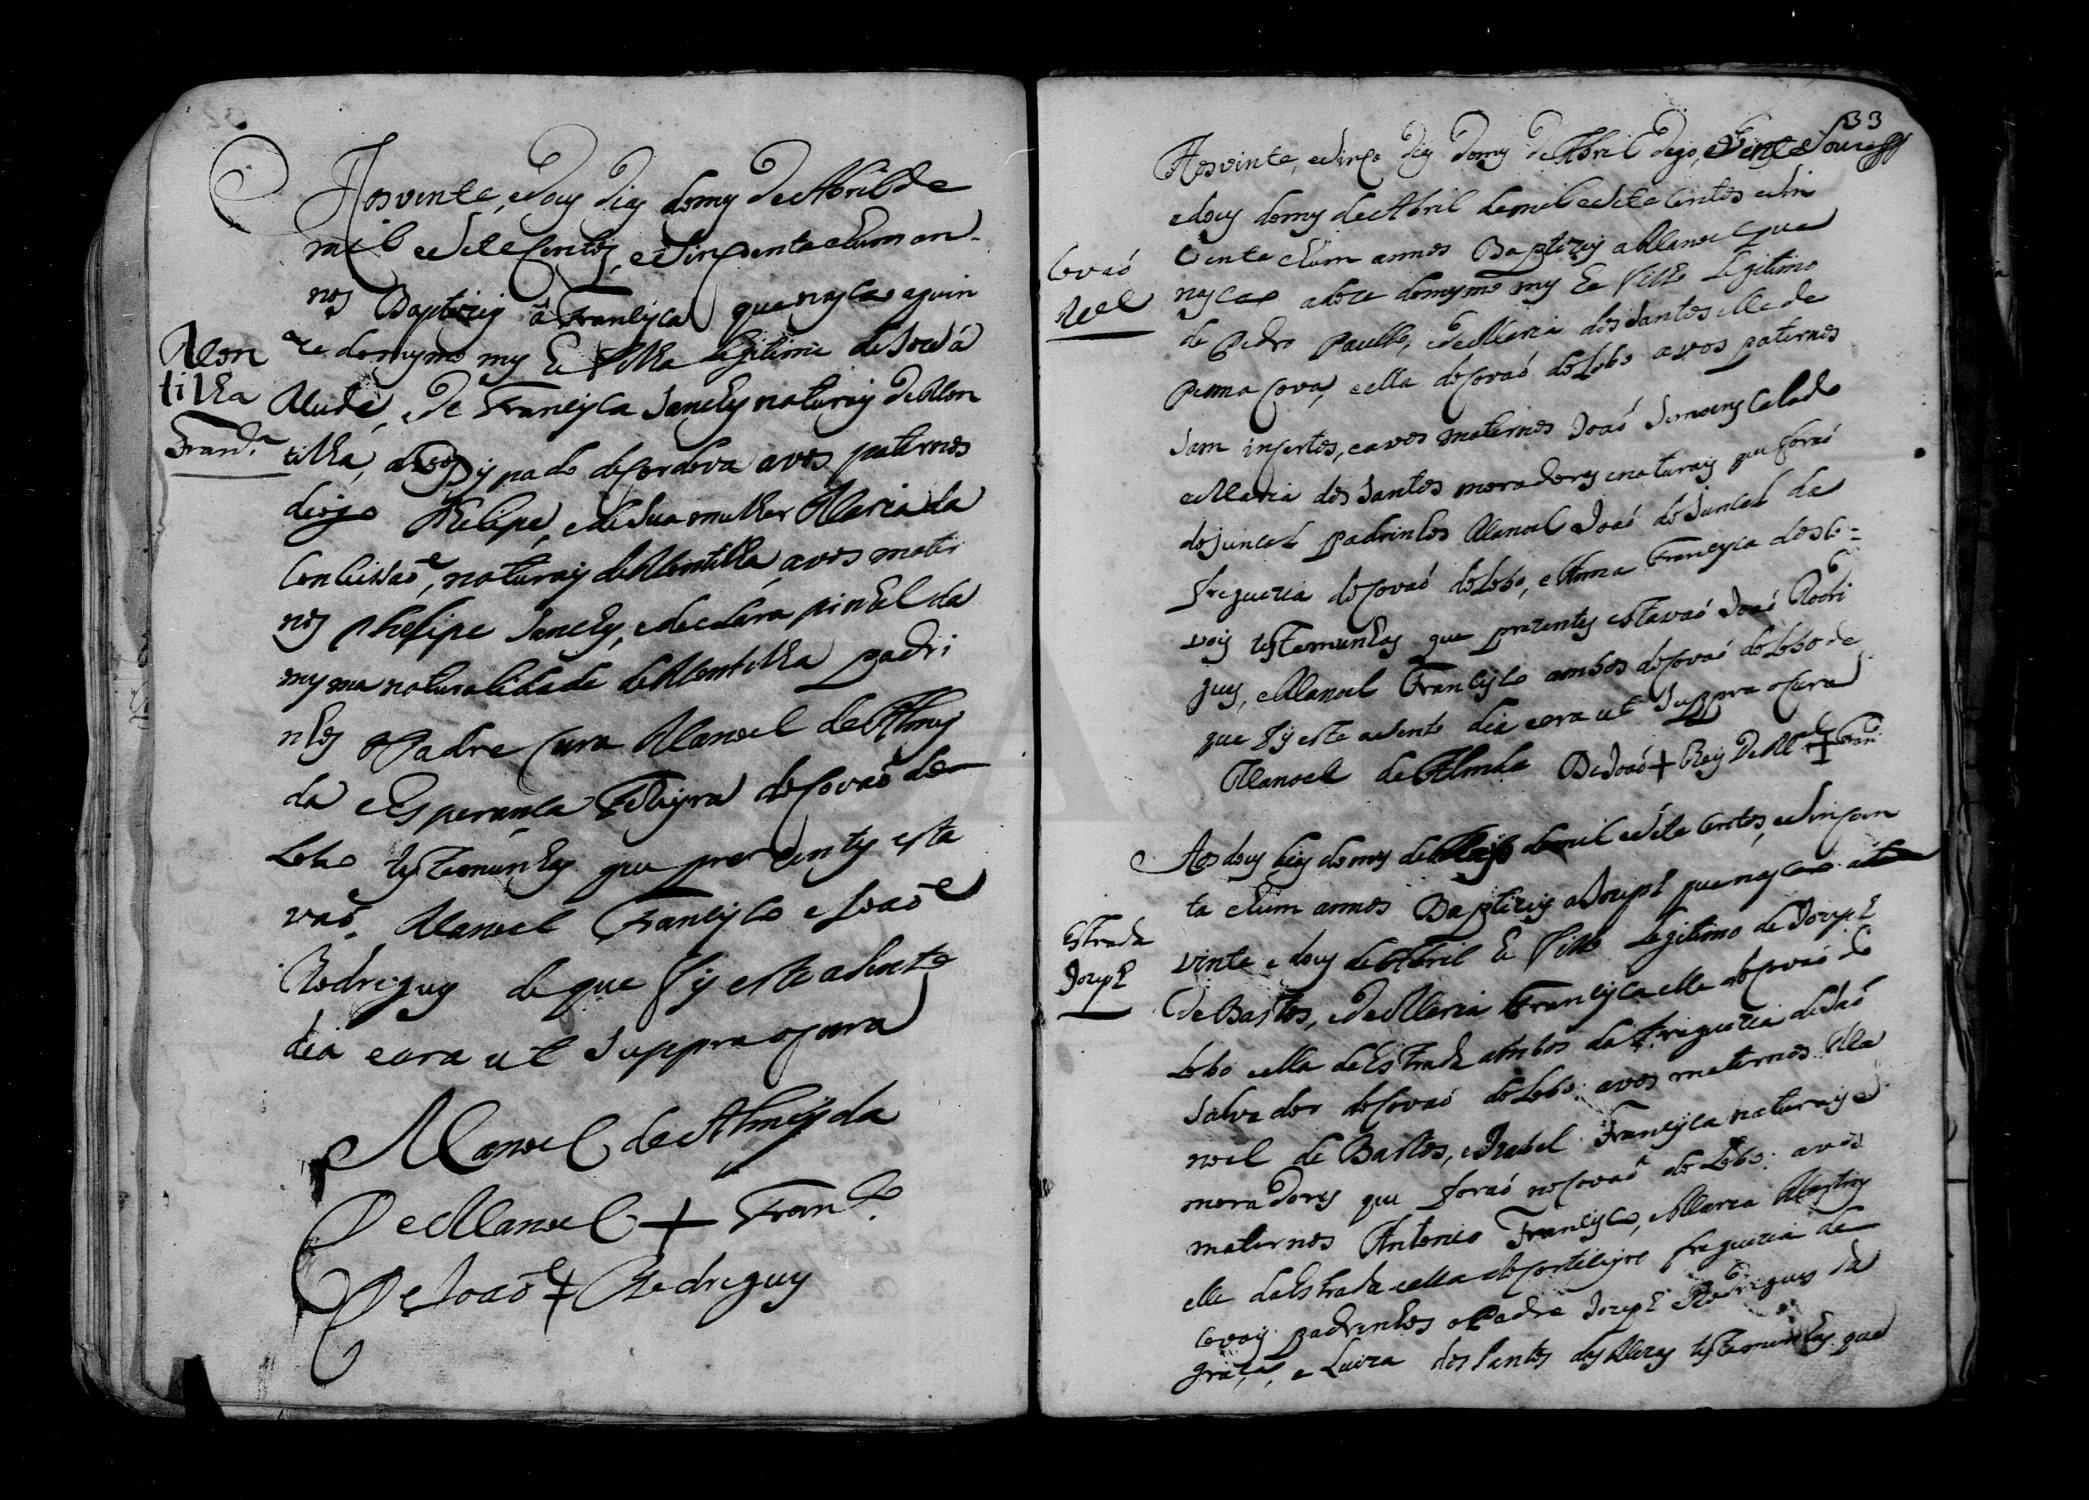 Aos vinte, e dous dias do mes de Abril de
mil e sete sentos, e sinquenta e hum an-
nos Baptizei a Francisca que nasceo a quin
ze do mesmo mes he filha legitima de
de Francisca Sanches naturais de Mon
tilha, do Bispado de Cordova avos paternos
diogo Phelipe, e de sua mulher Maria da
Conceissaõ, naturais de Montilha avos mater
nos Phelipe Sanches, e de Clara pinhel da
mesma naturalidade de Montilha padri
nhos o Padre Cura Manoel de Almey
da e Esperança Teixeira do Covaõ do
Lobo testemunhas que prezentes esta
vaõ. Manoel Francisco e Joaõ
Rodrigues de que fis este asento
dia e era ut suppra o Cura
Manoel de Almeyda
De Manoel + Franco.
De Joaõ + Rodrigues
Mon
tilha
Franca.
33
Aos vinte, e sinco dias do mes de Abril digo, vinte
e dous do mes de Abril de mil e sete centos e sin
coenta e hum annos Baptizei a Manoel que
nasceo a doze do mesmo mes he filho legitimo
de Pedro Paullo, e de Maria dos Santos elle de
Penna cova, e ella do Covaõ do Lobo avos paternos
sam incertos, e avos maternos Joaõ Simoens Calado
e Maria dos Santos moradores e naturais que foraõ
do Juncal padrinhos Manoel Joaõ do Juncal da
freguezia do Covaõ do Lobo, e Anna Francisca dos Co=
vois testemunhas que prezentes estavaõ Joaõ Rodri
gues, e Manoel Francisco ambos do Covaõ do Lobo de
que fis este asento dia e era ut suppra o Cura
Manoel de Almda De Joaõ + Roiz De Ml + Franco
Covaõ
Aos dous dias do mes de Mayo de mil e sete centos, e sincoen
ta e hum annos Baptizei a Joseph que nasceo aos
vinte e dous de Abril he filho legitimo de Jozeph
de Bastos, e de Maria Francisca elle do Covaõ do
Lobo e ella da Estrada ambos da freguezia de Saõ
Salvador do Covaõ do Lobo: avos maternos Ma
noel de Bastos, e Izabel Francisca naturais e
moradores que foraõ no Covaõ do Lobo: avos
maternos Antonio Francisco, e Maria Martins
elle da Estrada e ella de freguezia de
Covois padrinhos o Padre Jozeph Rodrigues da
graça, e Luiza dos Santos das testemunhas que
Estrada
Jozeph